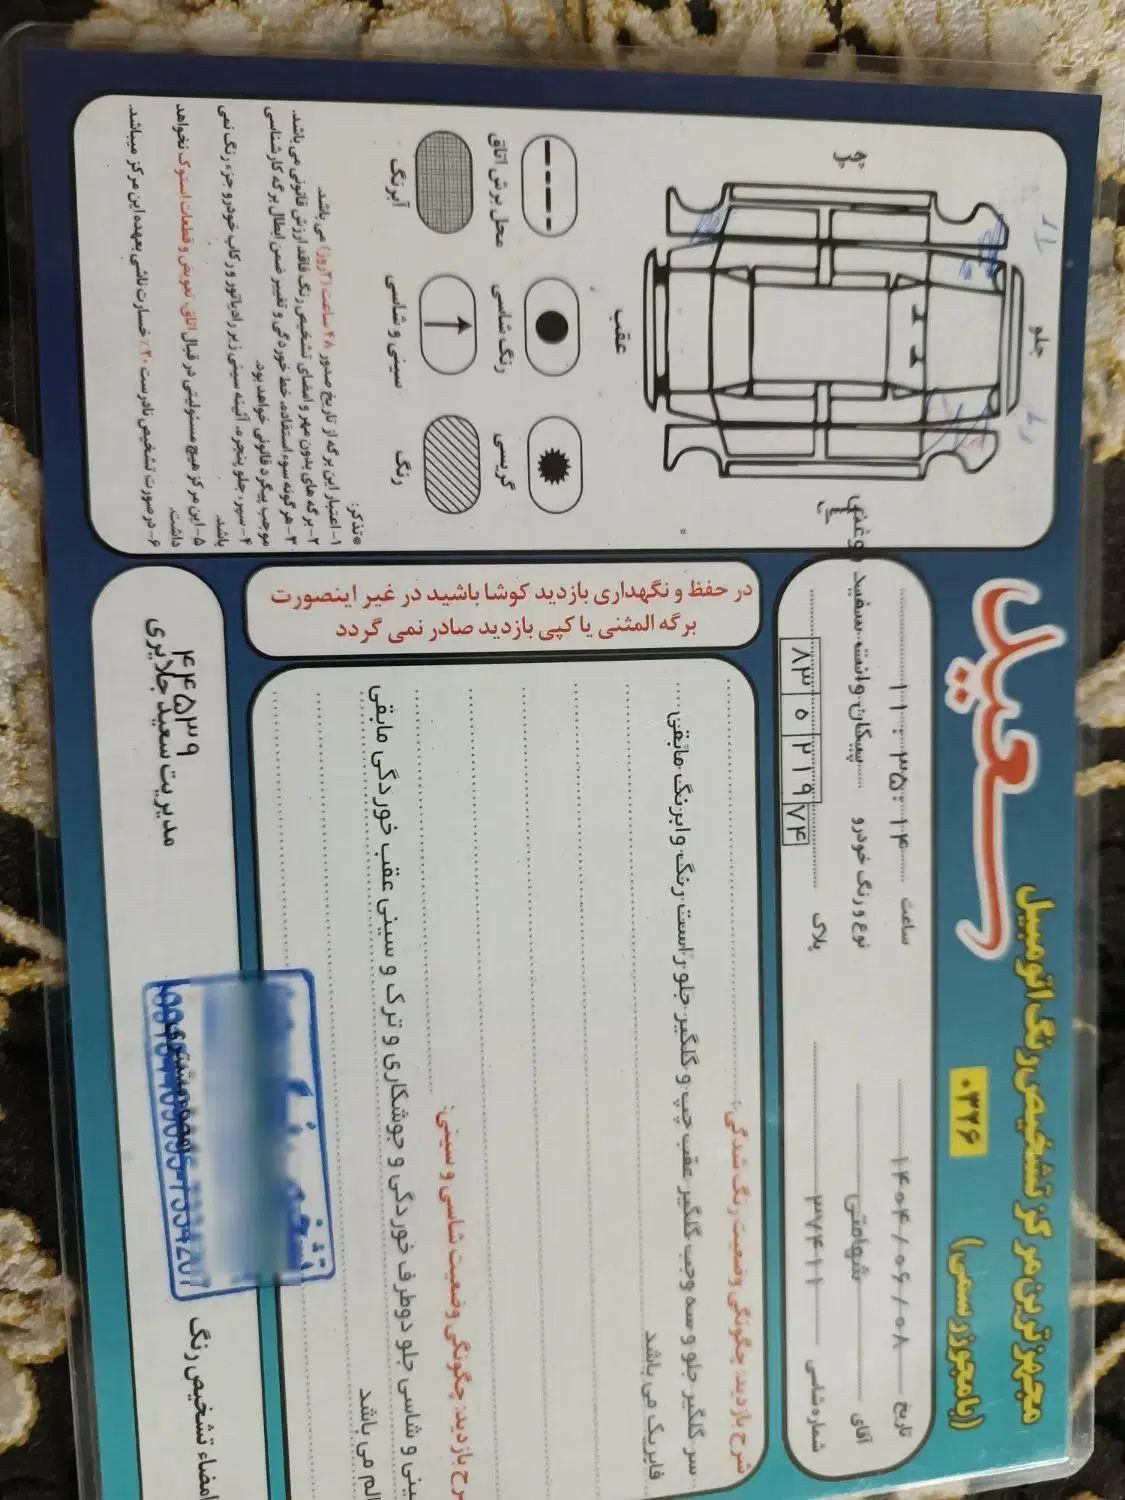 سعید
مجهزترین مرکز تشخیص رنگ اتومبیل
(با مجوز رسمی)
۰۳۲۶
تاریخ ۱۴۰۴/۰۶/۰۸
ساعت ۱۱:۳۵:۱۴
آقای شهامتی
نوع و رنگ خودرو پیکان وانت سفید روغنی
شماره شاسی ۳۷۴۱۱
پلاک ۸۳ ۵ ۲۱۹ ۷۴
شرح بازدید: چگونگی وضعیت رنگ شدگی:
سر گلگیر جلو و سه وجب گلگیر عقب چپ و گلگیر جلو راست رنگ و ابرنگ مابقی
فابریک می باشد
رح بازدید: چگونگی وضعیت شاسی و سینی:
ینی و شاسی جلو دوطرف خوردگی و جوشکاری و ترک و سینی عقب خوردگی مابقی
الم می باشد
امضاء تشخیص رنگ
۴۴۵۳۹
مدیریت سعید جلایری
در حفظ و نگهداری بازدید کوشا باشید در غیر اینصورت
برگه المثنی یا کپی بازدید صادر نمی گردد
جلو
عقب
محل برش اتاق
رنگ شاسی
گریسی
آبرنگ
سینی و شاسی
رنگ
*تذکر:
۱- اعتبار این برگه از تاریخ صدور ۴۸ ساعت (۲ روز) می باشد.
۲- برگه های بدون مهر و امضای تشخیص رنگ فاقد ارزش قانونی می باشد.
۳- هر گونه سوء استفاده، خط خوردگی و تغییر ضمن ابطال برگه کارشناسی
موجب پیگرد قانونی خواهد بود.
۴- سپر، جلو پنجره، آئینه سینی زیر رادیاتور و رکاب خودرو جزء رنگ نمی
باشد.
۵- این مرکز هیچ مسئولیتی در قبال اتاق، تعویض و قطعات استوک نخواهد
داشت.
۶- در صورت تشخیص نادرست ۲۰٪ خسارت ناشی بعهده این مرکز میباشد.